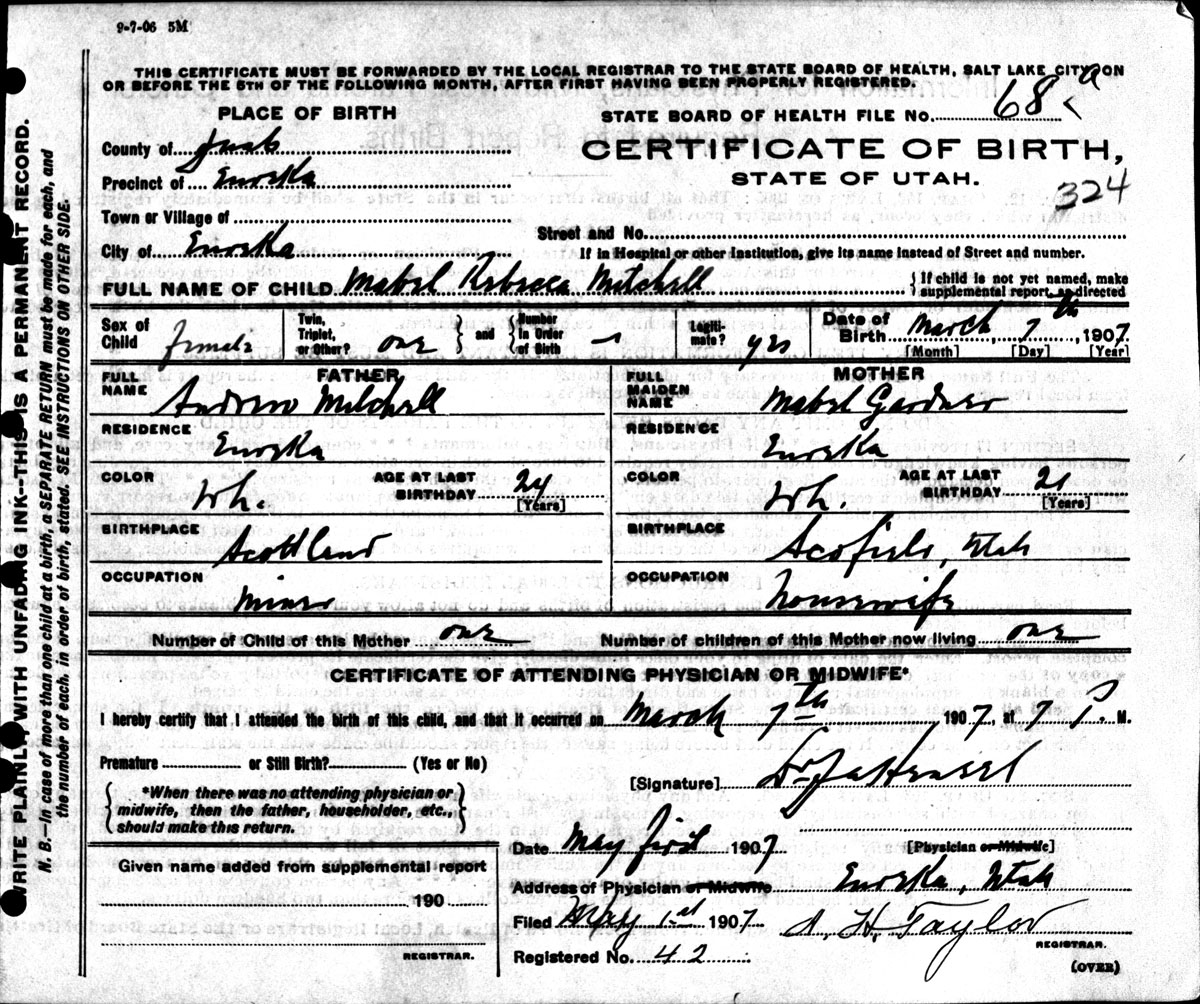 9-7-06 5M
THIS CERTIFICATE MUST BE FORWARDED BY THE LOCAL REGISTRAR TO THE STATE BOARD OF HEALTH, SALT LAKE CITY, ON
OR BEFORE THE 5TH OF THE FOLLOWING MONTH, AFTER FIRST HAVING BEEN PROPERLY REGISTERED.
PLACE OF BIRTH
STATE BOARD OF HEALTH FILE No. 68
County of Juab
CERTIFICATE OF BIRTH,
STATE OF UTAH.
324
Precinct of Eureka
Town or Village of
Street and No.
City of Eureka
If in Hospital or other Institution, give its name instead of Street and number.
FULL NAME OF CHILD Mabel Rebecca Mitchell { If child is not yet named, make supplemental report, as directed
Sex of Child female
Twin, Triplet, or Other? one } and { Number in Order of Birth –
Legitimate? yes
Date of Birth March 7th, 1907
[Month] [Day] [Year]
FATHER
FULL NAME Andrew Mitchell
RESIDENCE Eureka
COLOR Wh. AGE AT LAST BIRTHDAY 24 [Years]
BIRTHPLACE Scottland
OCCUPATION Miner
MOTHER
FULL MAIDEN NAME Mabel Gardner
RESIDENCE Eureka
COLOR Wh. AGE AT LAST BIRTHDAY 21 [Years]
BIRTHPLACE Scofield, Utah
OCCUPATION Housewife
Number of Child of this Mother one Number of children of this Mother now living one
CERTIFICATE OF ATTENDING PHYSICIAN OR MIDWIFE*
I hereby certify that I attended the birth of this child, and that it occurred on March 7th, 1907, at 7 P. M.
Premature or Still Birth? (Yes or No)
[Signature] Dr
{ *When there was no attending physician or midwife, then the father, householder, etc., should make this return. }
Date May first 1907 [Physician or Midwife]
Given name added from supplemental report
190
REGISTRAR.
Address of Physician or Midwife Eureka, Utah
Filed May 1st 1907 A. H. Taylor
REGISTRAR.
Registered No. 42
(OVER)
WRITE PLAINLY WITH UNFADING INK--THIS IS A PERMANENT RECORD.
N. B.—In case of more than one child at a birth, a SEPARATE RETURN must be made for each, and
the number of each, in order of birth, stated. SEE INSTRUCTIONS ON OTHER SIDE.